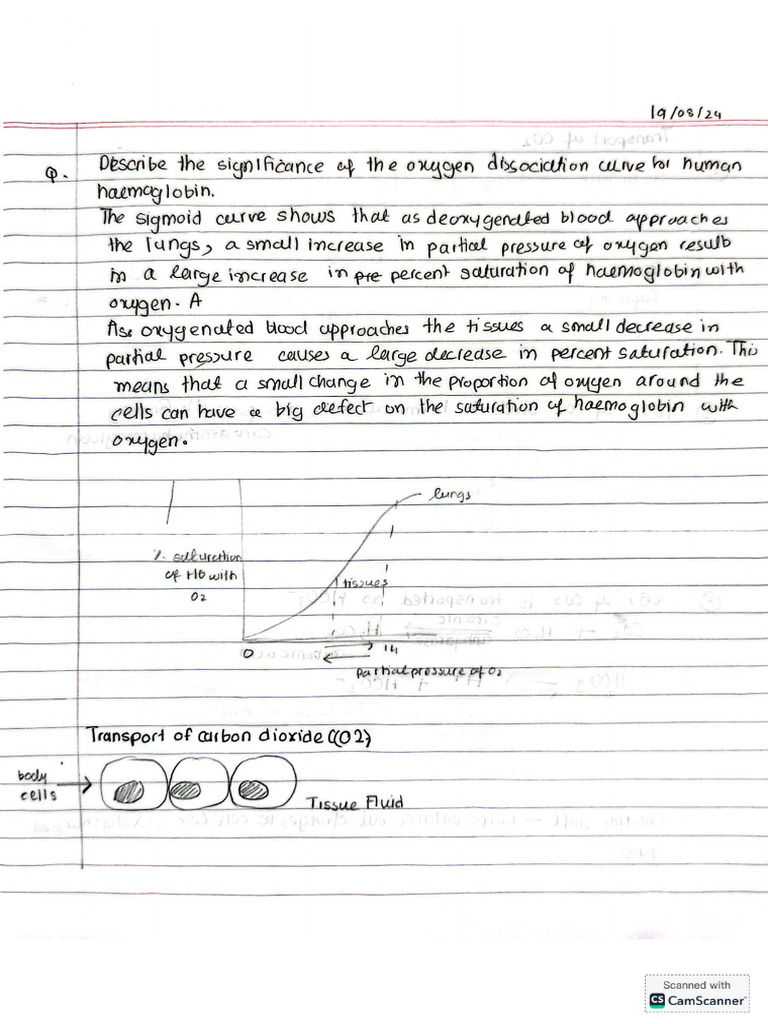 19/08/24
Q. Describe the significance of the oxygen dissociation curve for human
haemoglobin.
The sigmoid curve shows that as deoxygenated blood approaches
the lungs, a small increase in partial pressure of oxygen results
in a large increase in pre percent saturation of haemoglobin with
oxygen. A
As oxygenated blood approaches the tissues a small decrease in
partial pressure causes a large decrease in percent saturation. This
means that a small change in the proportion of oxygen around the
cells can have a big defect on the saturation of haemoglobin with
oxygen.
lungs
% saturation
of Hb with
O2
tissues
0
14
partial pressure of O2
Transport of carbon dioxide (CO2)
body
cells
Tissue Fluid
Scanned with
CS CamScanner